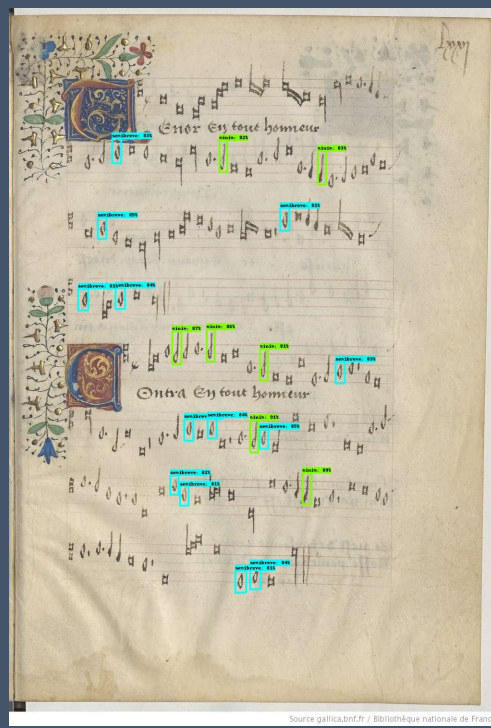 Tenor En tout honneur
semibreve: 83%
minim: 82%
minim: 83%
semibreve: 85%
semibreve: 82%
semibreve: 84%
minim: 87%
minim: 86%
minim: 81%
semibreve: 83%
Contra En tout honneur
semibreve: 84%
minim: 91%
semibreve: 85%
semibreve: 82%
semibreve: 81%
minim: 89%
semibreve: 83%
semibreve: 84%
Source gallica.bnf.fr / Bibliothèque nationale de